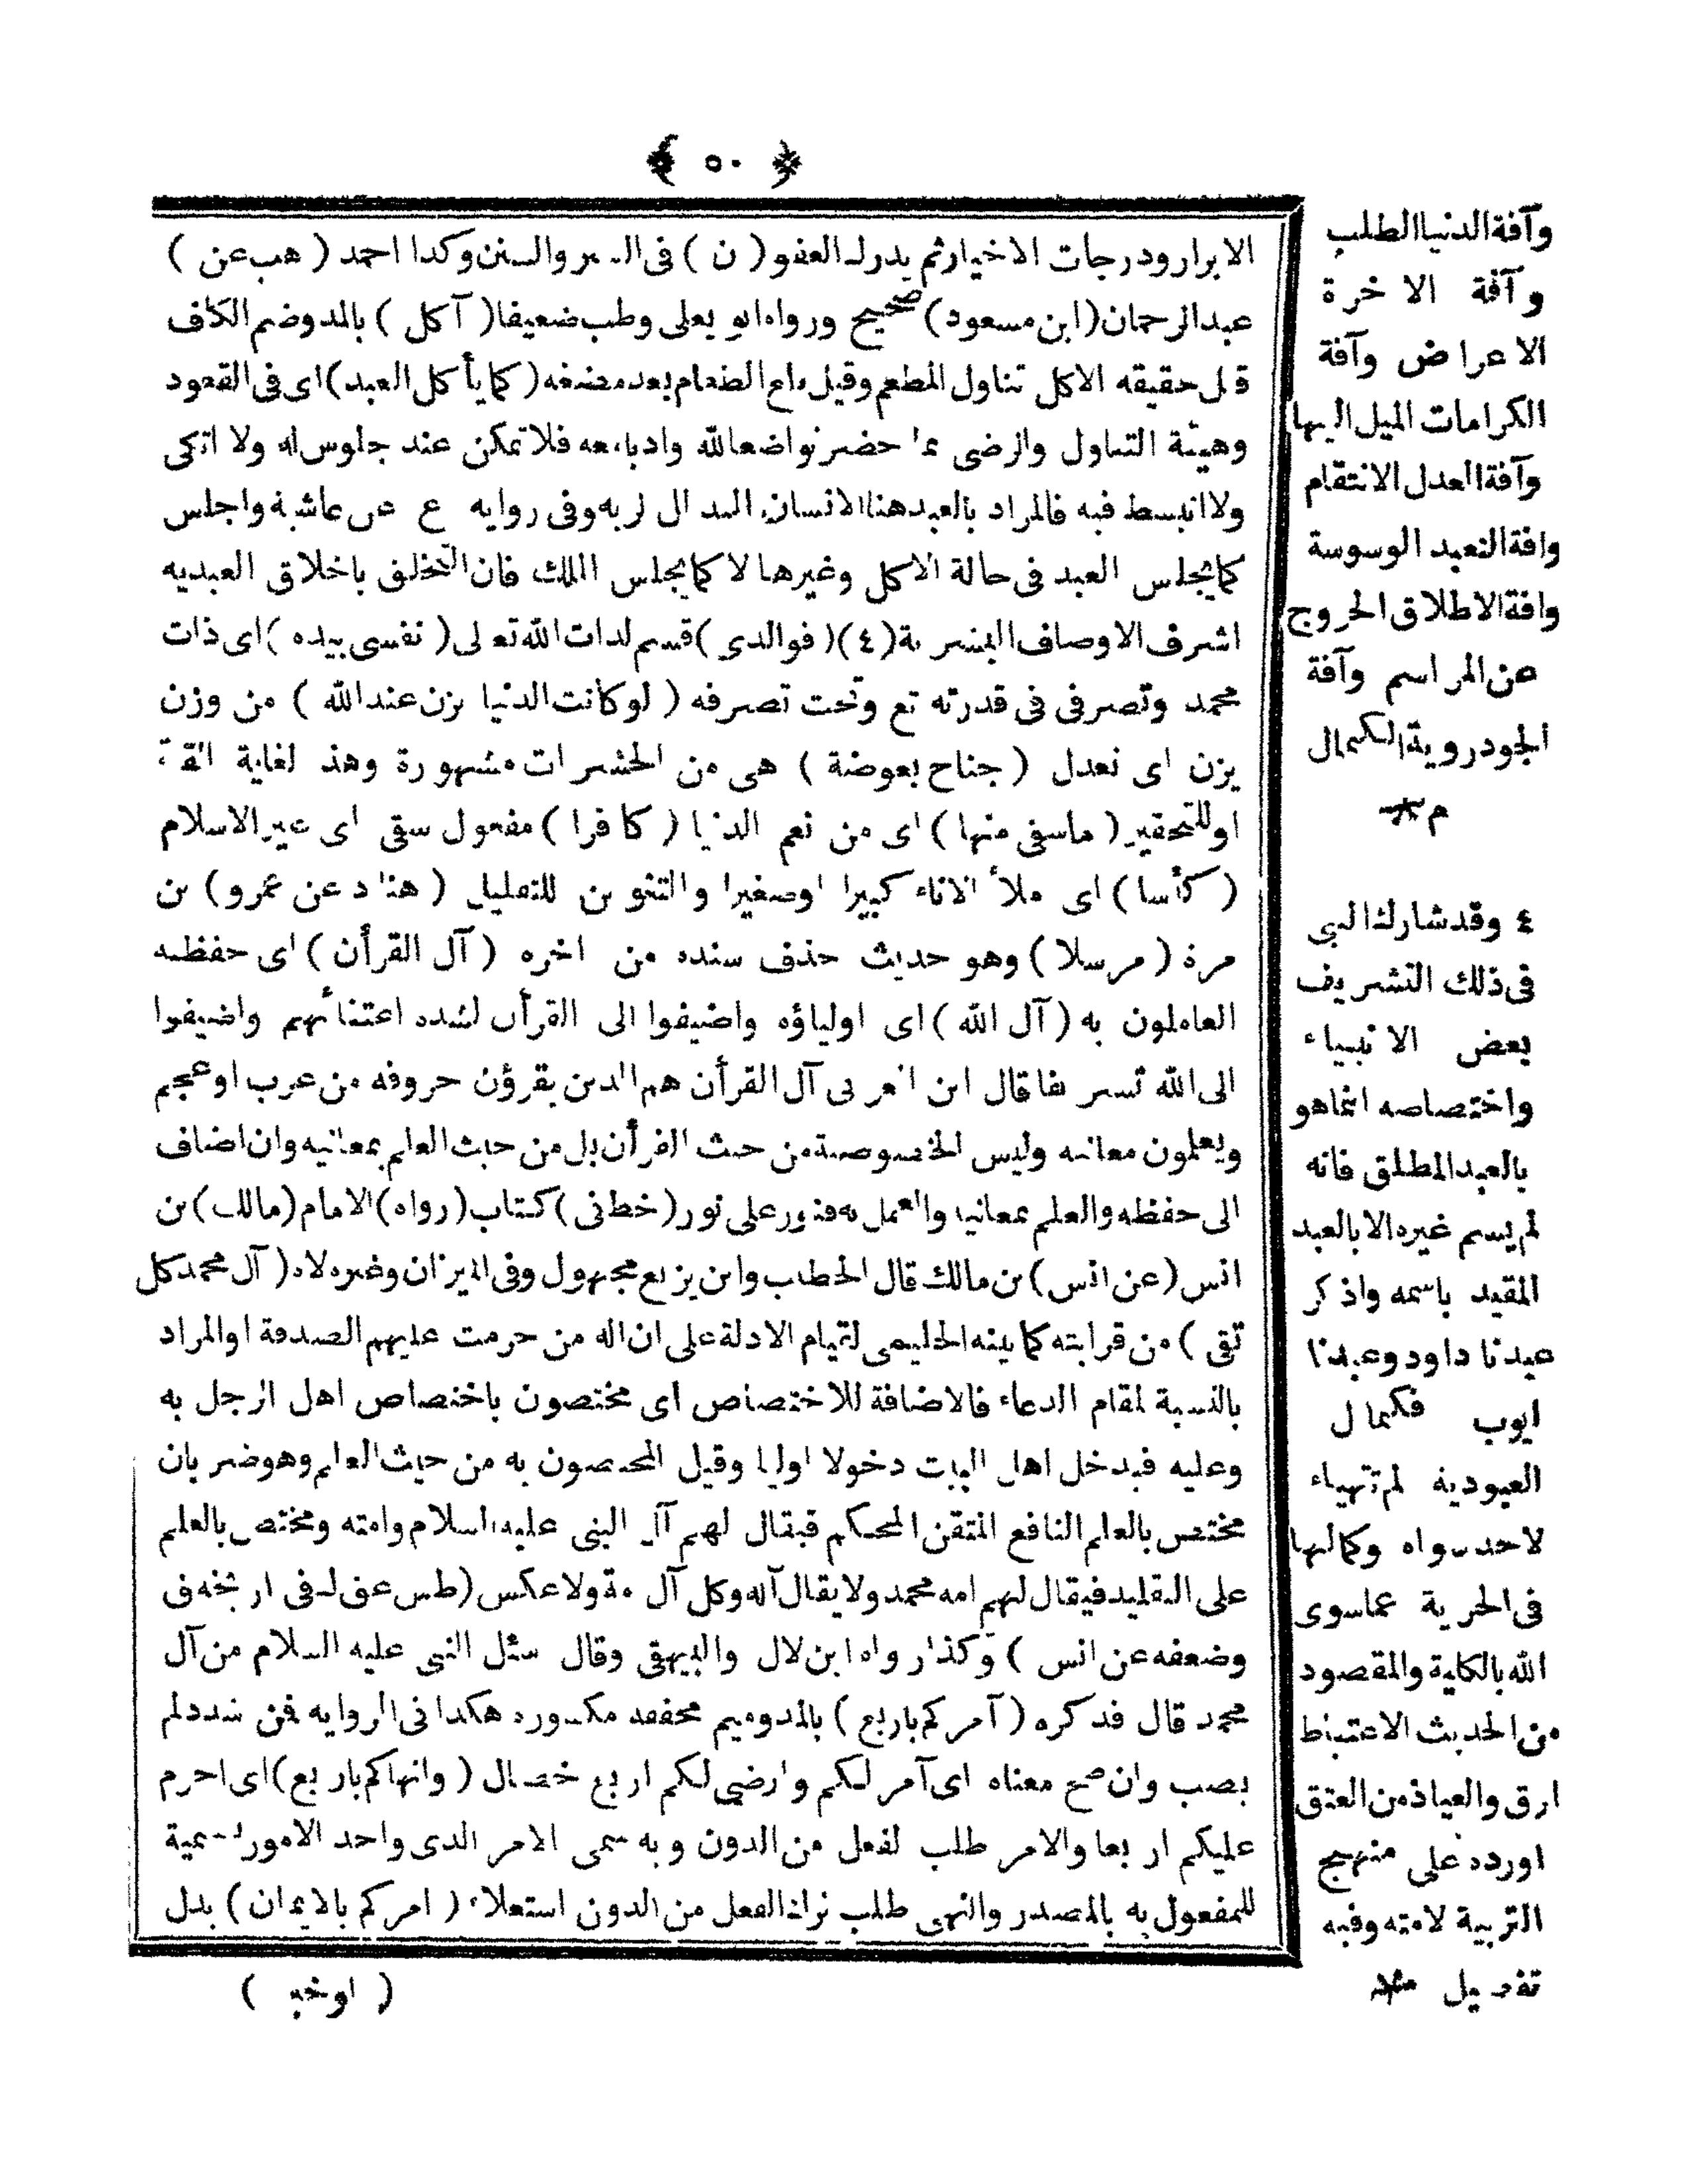 ﴿ ٥٠ ﴾
الابرار ودرجات الاخيار ثم يدرك العفو ( ن ) فى السير والسنن وكذا احمد ( هب عن )
عبدالرحمان (ابن مسعود) صحيح ورواه ابو يعلى وطب ضعيفا ( آكل ) بالمد وضم الكاف
قيل حقيقه الاكل تناول المطعم وقيل بلع الطعام بعد مضغه ( كما يأكل العبد ) اى فى القعود
وهيئة التناول والرضى بما حضر تواضعا لله وادبا معه فلا تمكن عند جلوس له ولا اتكى
ولا انبسط فيه فالمراد بالعبد هنا الانسان لربه وفى روايه ع عن عائشة واجلس
كما يجلس العبد فى حالة الاكل وغيرها لا كما يجلس الملك فان التخلق باخلاق العبديه
اشرف الاوصاف البشرية (٤) ( فوالذى ) قسم لذات الله تعالى ( نفسى بيده ) اى ذات
محمد وتصرفى فى قدرته تع وتحت تصرفه ( لو كانت الدنيا تزن عند الله ) من وزن
يزن اى تعدل ( جناح بعوضة ) هى من الحشرات مشهورة وهذ لغاية القلة
او للتحقير ( ماسقى منها ) اى من نعم الدنيا ( كافرا ) مفعول سقى اى غير الاسلام
( كأسا ) اى ملأ الاناء كبيرا او صغيرا والتنوين للتقليل ( هناد عن عمرو ) بن
مرة ( مرسلا ) وهو حديث حذف سنده من اخره ( آل القرأن ) اى حفظه
العاملون به ( آل الله ) اى اولياؤه واضيفوا الى القرأن لشده اعتنائهم واضيفوا
الى الله تشريفا قال ابن العربى آل القرأن هم الذين يقرؤن حروفه من عرب او عجم
ويعلمون معانيه وليس الخصوصية من حيث القرأن بل من حيث العلم بمعانيه وان اضاف
الى حفظه والعلم بمعانيها والعمل به فنور على نور ( خط فى ) كتاب ( رواه ) الامام ( مالك ) بن
انس ( عن انس ) بن مالك قال الخطيب وابن بزيع مجهول وفى الميزان وغيره لاه ( آل محمد كل
تقى ) من قرابته كما بينه الحليمى لقيام الادلة على ان اله من حرمت عليهم الصدقة او المراد
بالنسبة لمقام الدعاء فالاضافة للاختصاص اى مختصون باختصاص اهل الرجل به
وعليه فيدخل اهل البيت دخولا اوليا وقيل المختصون به من حيث العلم وهو ضربان
مختص بالعلم النافع المتقن المحكم فيقال لهم آل النبى عليه السلام وامته ومختص بالعلم
على التقليد فيقال لهم امه محمد ولا يقال آله وكل آل مة ولا عكس ( طس عق ك فى اريخه ق
وضعفه عن انس ) وكذا رواه ابن لال والبيهقى وقال سئل النبى عليه السلام من آل
محمد قال فذكره ( آمركم باربع ) بالمد وميم مخففه مكسوره هكذا فى الروايه فمن شدد لم
يصب وان صح معناه اى آمر لكم وارضى لكم اربع خصال ( وانهاكم باربع ) اى احرم
عليكم اربعا والامر طلب لفعل من الدون وبه سمى الامر الذى واحد الامور تسمية
للمفعول به بالمصدر والنهى طلب ترك الفعل من الدون استعلاء ( امركم بالايمان ) بدل
( اوخبر )
وآفة الدنيا الطلب
وآفة الاخرة
الاعراض وآفة
الكرامات الميل اليها
وآفة العدل الانتقام
وافة التعبد الوسوسة
وافة الاطلاق الخروج
عن المراسم وآفة
الجود روية الكمال
م
٤ وقد شارك النبى
فى ذلك التشريف
بعض الانبياء
واختصاصه انما هو
بالعبد المطلق فانه
لم يسم غيره الا بالعبد
المقيد باسمه واذكر
عبدنا داود وعبدنا
ايوب فكمال
العبودية لم تتهياء
لاحد سواه وكمالها
فى الحرية عماسوى
الله بالكلية والمقصود
من الحديث الاغتباط
ارق والعياذ من العتق
اورده على منهج
التربية لامته وفيه
تفصيل